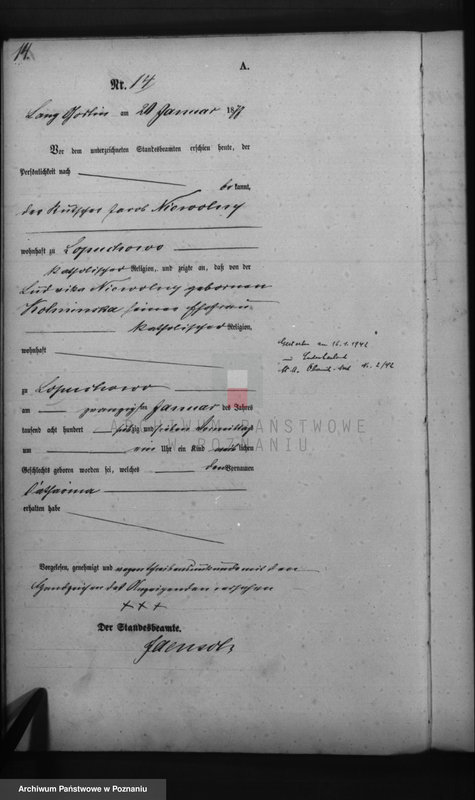 14.
A.
Nr. 14
Lang Goslin am 20 Januar 1877
Vor dem unterzeichneten Standesbeamten erschien heute, der
Persönlichkeit nach
be kannt,
der Kutscher Jacob Niewolny
wohnhaft zu Lopuchowo
katholischer Religion, und zeigte an, daß von der
Ludvika Niewolny geborenen
seiner Ehefrau
katholischer Religion,
wohnhaft
zu Lopuchowo
am zwanzigsten Januar des Jahres
tausend acht hundert siebzig und sieben Vormittags
um ein Uhr ein Kind weiblichen
Geschlechts geboren worden sei, welches den Vornamen
Catharina
erhalten habe
Gestorben am 16.1.1942
in
St. A. Nr. 2/42
ARCHIWUM PAŃSTWOWE
W POZNANIU
Vorgelesen, genehmigt und wegen Schreibensunkunde mit den
Handzeichen des Anzeigenden versehen
+ + +
Der Standesbeamte.
Jaensch
Archiwum Państwowe w Poznaniu